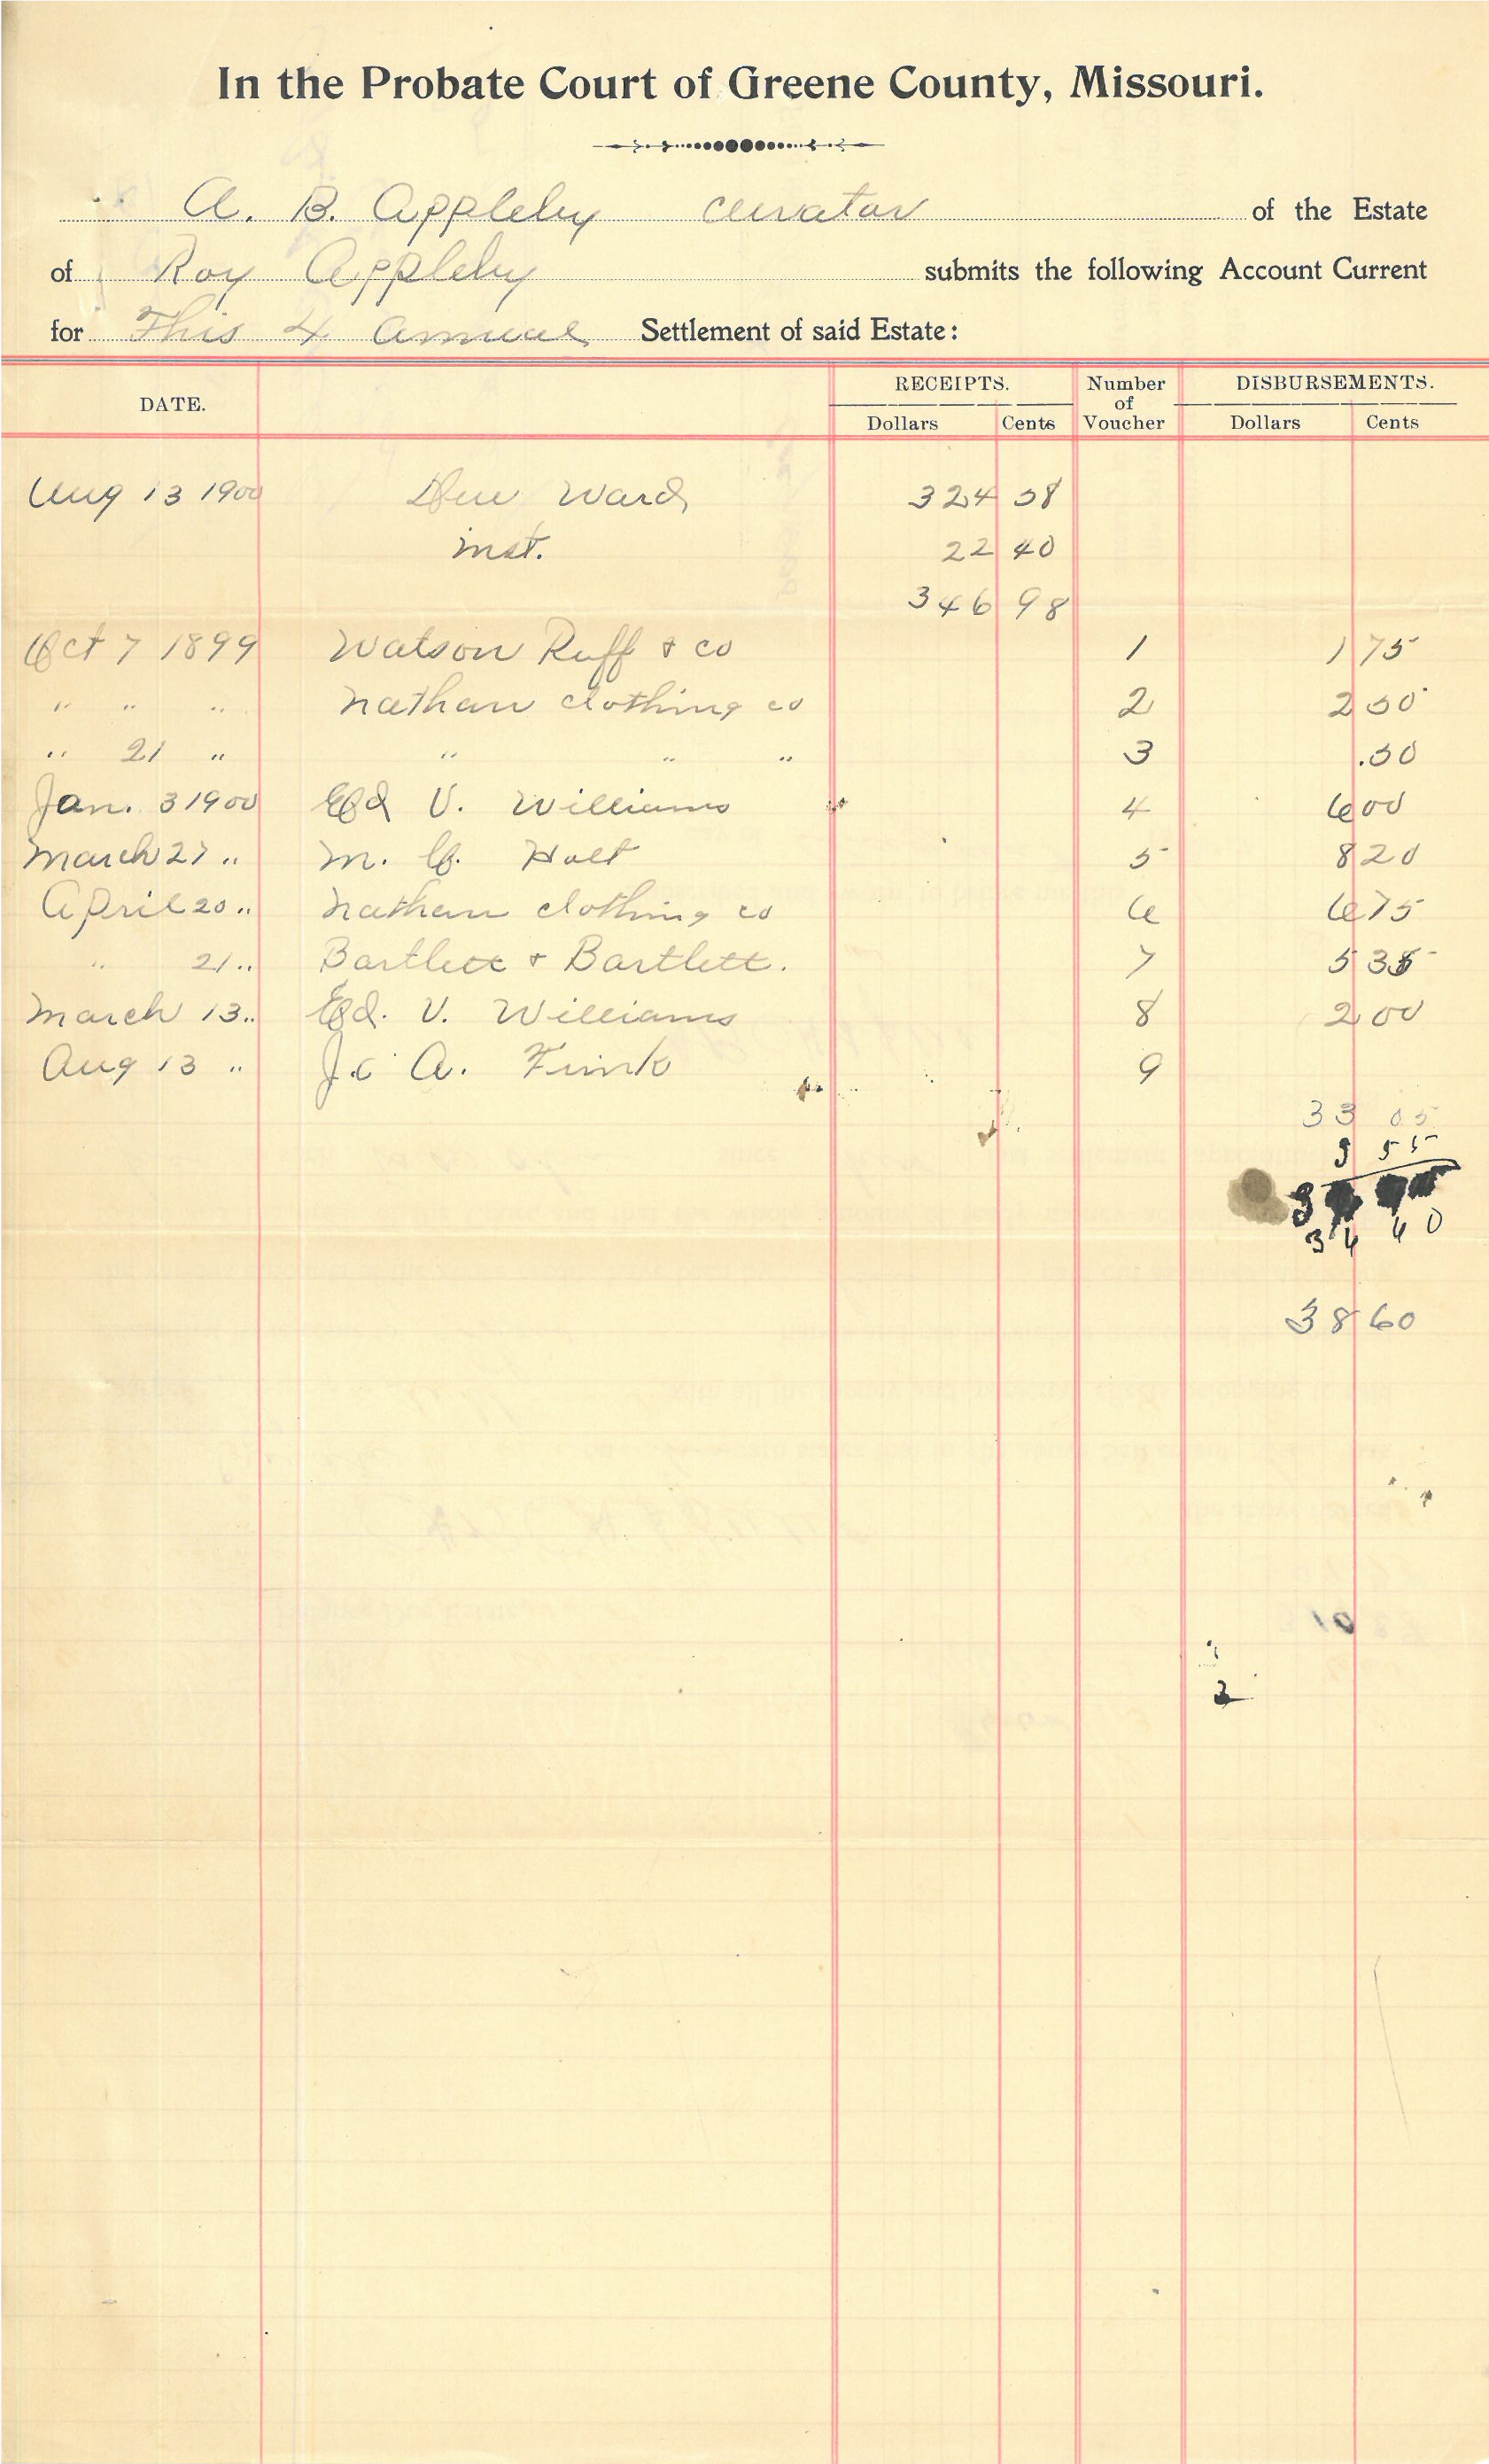 In the Probate Court of Greene County, Missouri.
A. B. Appleby curator of the Estate
of Roy Appleby submits the following Account Current
for This 4 Annual Settlement of said Estate:
DATE. RECEIPTS. Number of Voucher DISBURSEMENTS.
Dollars Cents Dollars Cents
Aug 13 1900 Due Ward 324 58
inst. 22 40
346 98
Oct 7 1899 Watson Ruff & co 1 1 75
" " " Nathan clothing co 2 2 50
" 21 " " " " 3 .50
Jan. 3 1900 Ed V. Williams 4 6 00
March 27 " M. C. Holt 5 8 20
April 20 " Nathan clothing co 6 6 75
" 21 " Bartlett & Bartlett. 7 5 35
March 13 " Ed. V. Williams 8 2 00
Aug 13 " J. C A. Funk 9
33 05
5 55
34 40
38 60